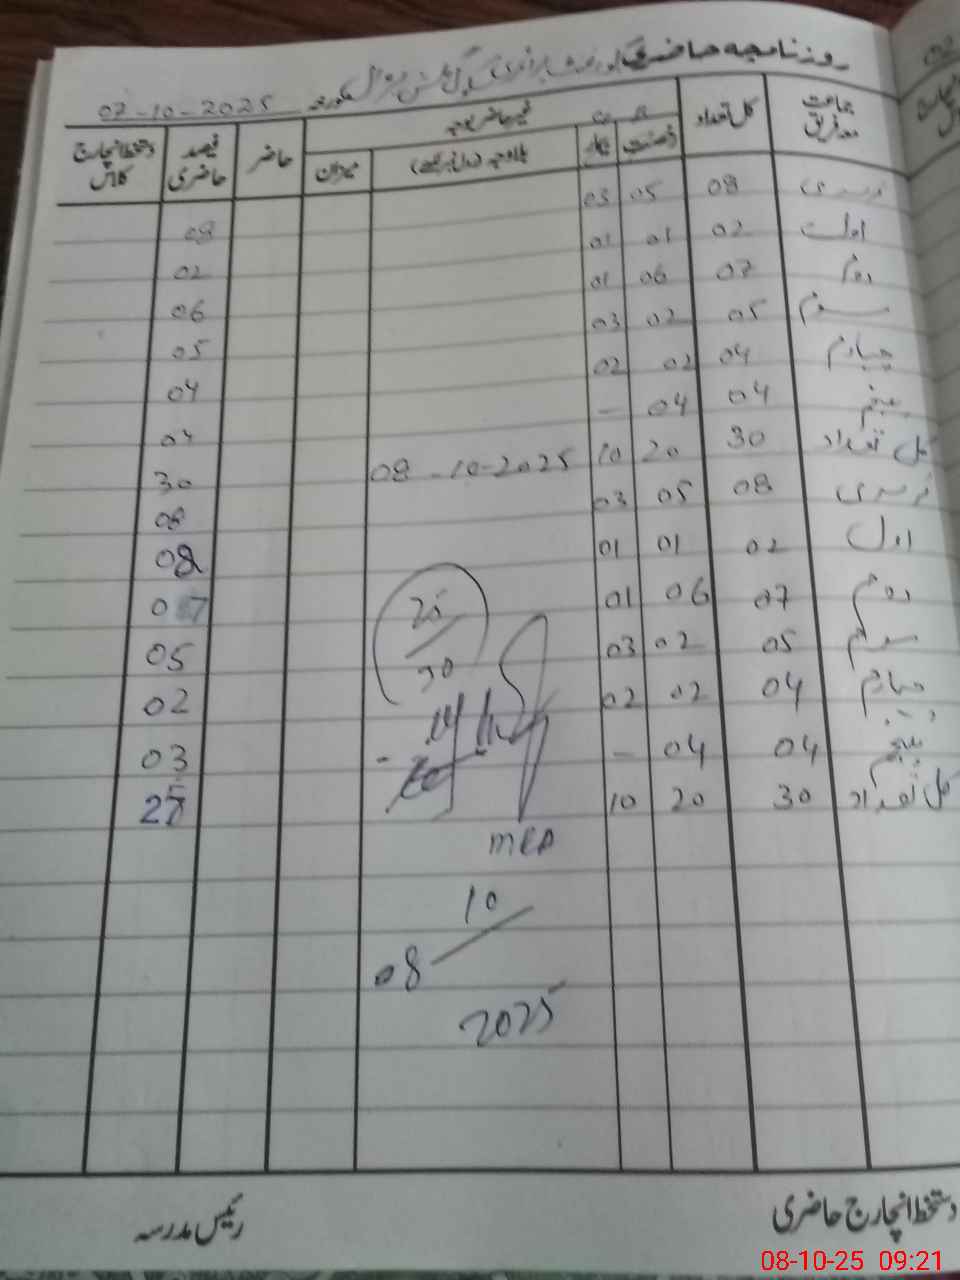 روزنامچہ حاضری گورنمنٹ پرائمری سکول
مورخہ 07-10-2025
جماعت معہ فریق کل تعداد غیر حاضر بوجہ حاضر فیصد حاضری دستخط انچارج کلاس
G B
رخصت بیمار بلاوجہ (رول نمبر) میزان
نرسری 08 05 03 08
اول 02 01 01 02
دوم 07 06 01 06
سوم 05 02 03 05
چہارم 04 02 02 04
پنجم 04 04 – 04
کل تعداد 30 20 10 30
08-10-2025
نرسری 08 05 03 08
اول 02 01 01 08
دوم 07 06 01 07
سوم 05 02 03 05
چہارم 04 02 02 02
پنجم 04 04 – 03
کل تعداد 30 20 10
30
MEA
08/10
2025
دستخط انچارج حاضری رئیس مدرسہ
08-10-25 09:21